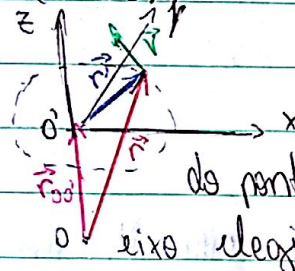 z y
v⃗
r⃗'
O' x
r⃗
r⃗OO'
do pont
O eixo elegi